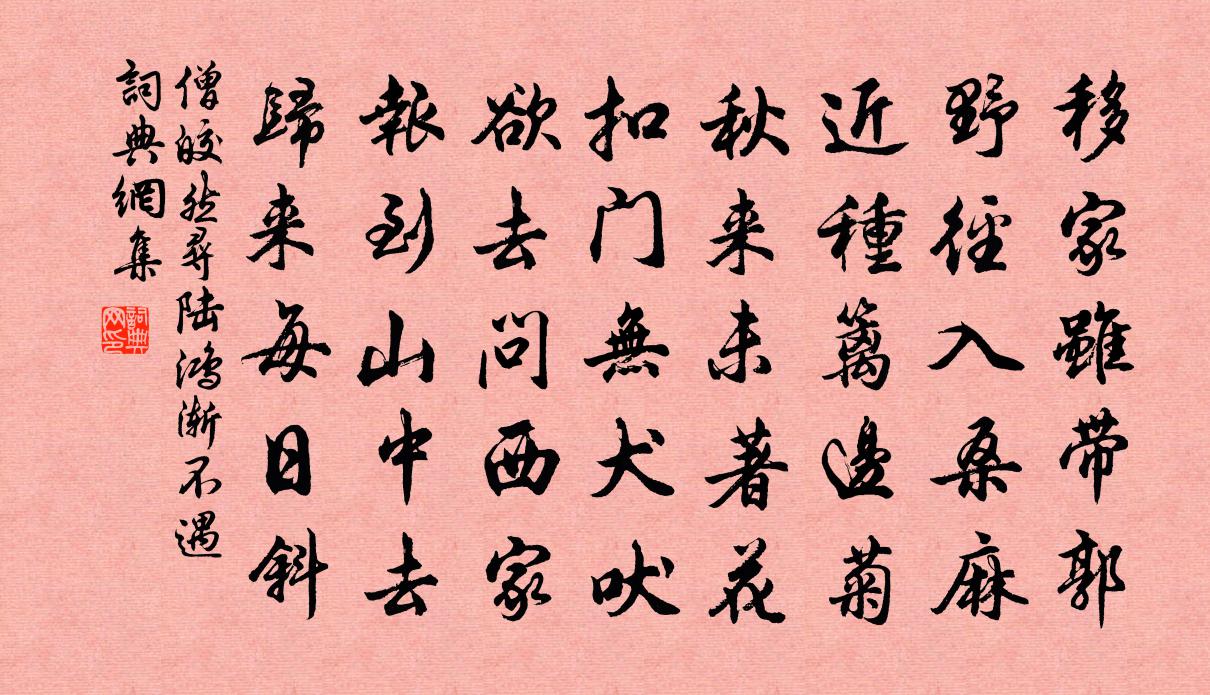 移家雖带郭
野徑入桑麻
近種籬邊菊
秋来未著花
扣门無犬吠
欲去问西家
報到山中去
歸来每日斜
僧皎然尋陆鸿渐不遇
詞典網集
詞典网印